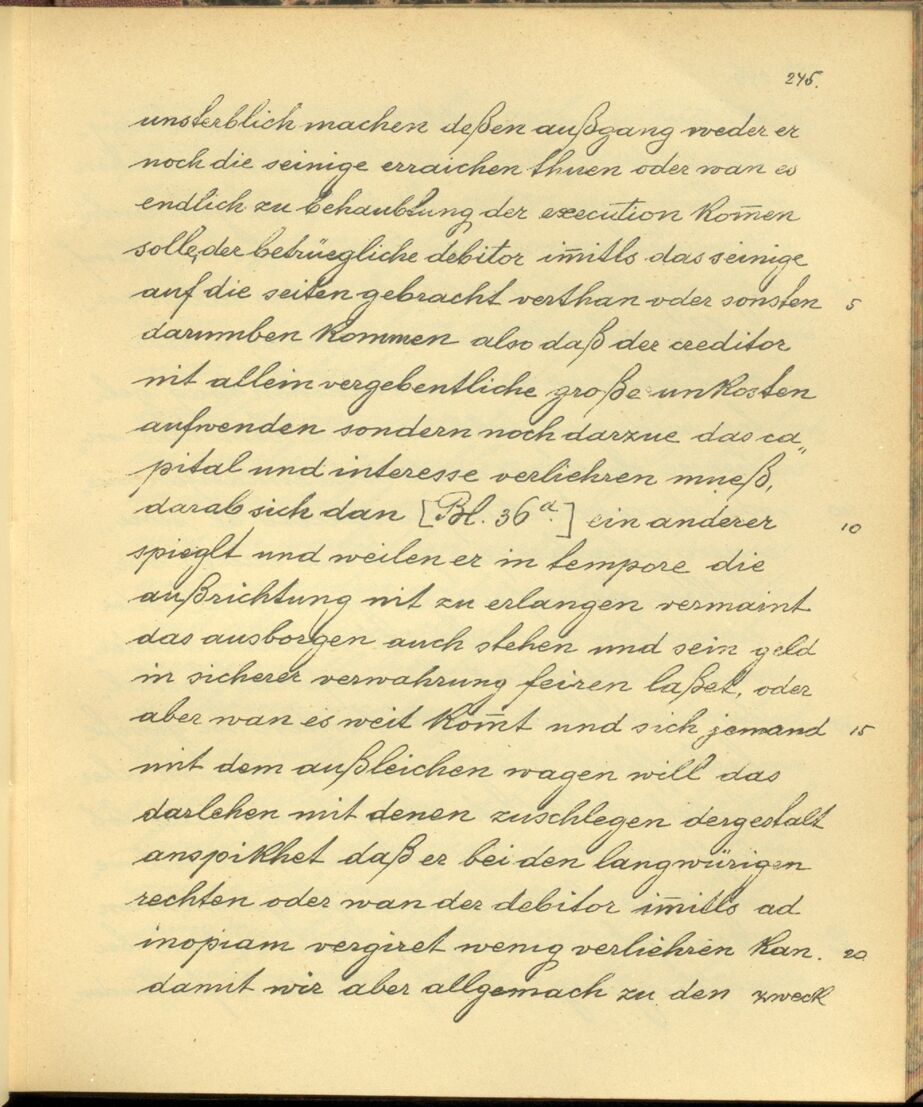 245.
unsterblich machen deßen außgang weder er
noch die seinige erraichen thuen oder wan es
endlich zu behaubtung der execution kom̄en
solle, der betrüegliche debitor im̄itls das seinige
auf die seiten gebracht verthan oder sonsten 5
darumben kommen also daß der creditor
nit allein vergebentliche große unkosten
aufwenden sondern noch darzue das ca„
pital und interesse verliehren mueß,
darab sich dan [Bl. 36ª.] ein anderer 10
spieglt und weilen er in tempore die
außrichtung nit zu erlangen vermaint
das ausborgen auch stehen und sein geld
in sicherer verwahrung feiren laßet, oder
aber wan es weit kom̄t und sich jemand 15
mit dem außleichen wagen will das
darlehen mit denen zuschlegen dergestalt
anspikhet daß er bei den langwürigen
rechten oder wan der debitor im̄itls ad
inopiam vergiret wenig verliehren kan. 20
damit wir aber allgemach zu den zweck